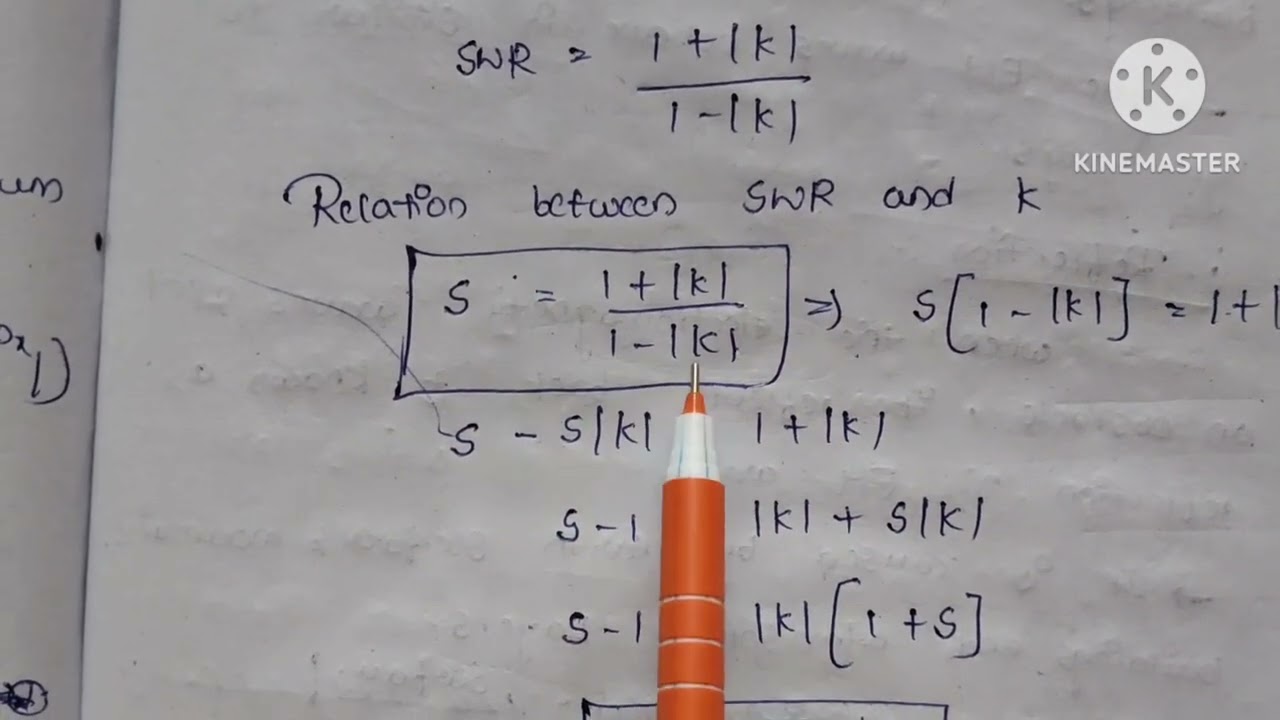 SWR = 1 + |k| / 1 - |k|
K
KINEMASTER
Relation between SWR and k
S = 1 + |k| / 1 - |k| => S[1 - |k|] = 1 +
S - S|k| 1 + |k|
S - 1 |k| + S|k|
S - 1 |k| [1 + S]